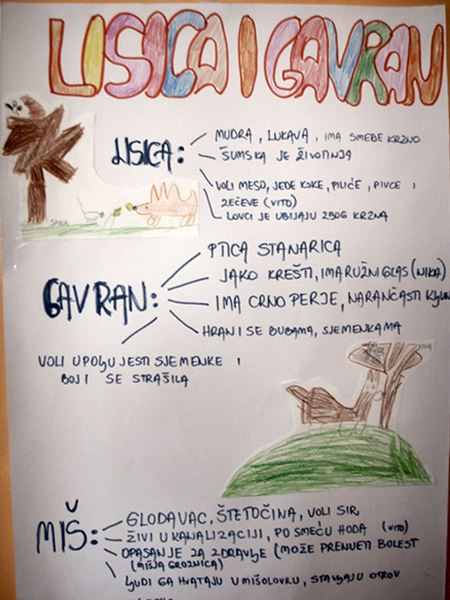 LISICA I GAVRAN
LISICA:
MUDRA, LUKAVA, IMA SMEĐE KRZNO
ŠUMSKA JE ŽIVOTINJA
VOLI MESO, JEDE KOKE, PILIĆE, PIVCE I
ZEČEVE (VITO)
LOVCI JE UBIJAJU ZBOG KRZNA
SARA
GAVRAN:
PTICA STANARICA
JAKO KREŠTI, IMA RUŽNI GLAS (NIKA)
IMA CRNO PERJE, NARANČASTI KLJUN
HRANI SE BUBAMA, SJEMENKAMA
VOLI U POLJU JESTI SJEMENKE I
BOJI SE STRAŠILA
MIŠ:
GLODAVAC, ŠTETOČINA, VOLI SIR,
ŽIVI U KANALIZACIJI, PO SMEĆU HODA (VITO)
OPASAN JE ZA ZDRAVLJE (MOŽE PRENIJETI BOLEST
(MIŠJA GROZNICA)
LJUDI GA HVATAJU U MIŠOLOVKU, STAVLJAJU OTROV